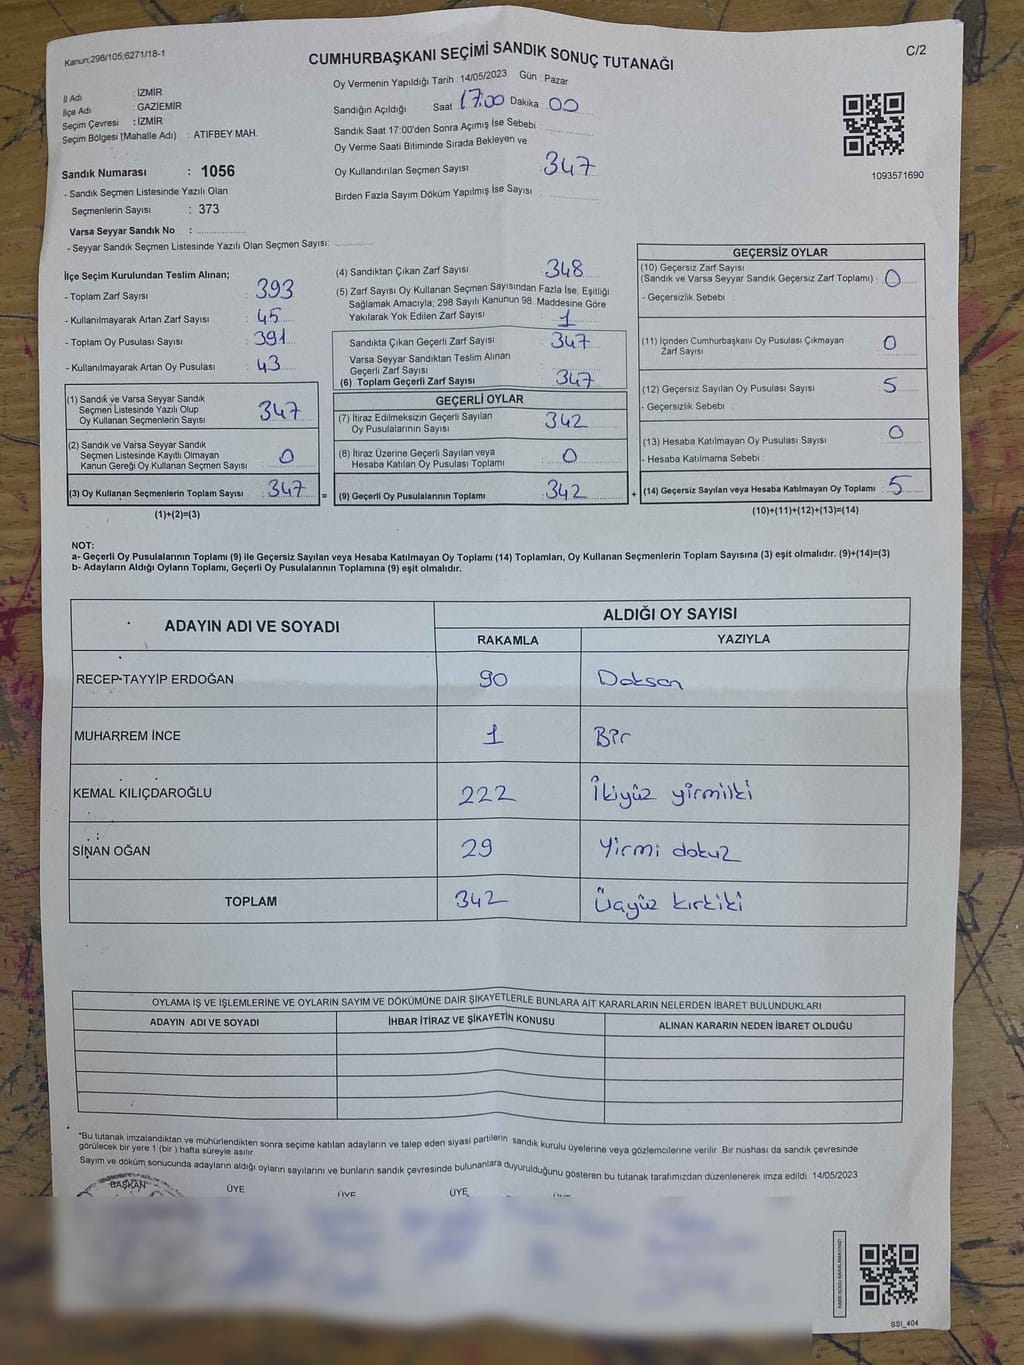 Kanun;298/105;6271/18-1
CUMHURBAŞKANI SEÇİMİ SANDIK SONUÇ TUTANAĞI
C/2
İl Adı : İZMİR
İlçe Adı : GAZİEMİR
Seçim Çevresi : İZMİR
Seçim Bölgesi (Mahalle Adı) : ATIFBEY MAH.
Sandık Numarası : 1056
- Sandık Seçmen Listesinde Yazılı Olan
Seçmenlerin Sayısı : 373
Varsa Seyyar Sandık No :
- Seyyar Sandık Seçmen Listesinde Yazılı Olan Seçmen Sayısı:
Oy Vermenin Yapıldığı Tarih : 14/05/2023 Gün : Pazar
Sandığın Açıldığı Saat 17:00 Dakika : 00
Sandık Saat 17:00'den Sonra Açımış İse Sebebi :
Oy Verme Saati Bitiminde Sırada Bekleyen ve
Oy Kullandırılan Seçmen Sayısı 347
Birden Fazla Sayım Döküm Yapılmış İse Sayısı :
1093571690
İlçe Seçim Kurulundan Teslim Alınan;
- Toplam Zarf Sayısı : 393
- Kullanılmayarak Artan Zarf Sayısı : 45
- Toplam Oy Pusulası Sayısı : 391
- Kullanılmayarak Artan Oy Pusulası : 43
(1) Sandık ve Varsa Seyyar Sandık
Seçmen Listesinde Yazılı Olup
Oy Kullanan Seçmenlerin Sayısı : 347
(2) Sandık ve Varsa Seyyar Sandık
Seçmen Listesinde Kayıtlı Olmayan
Kanun Gereği Oy Kullanan Seçmen Sayısı : 0
(3) Oy Kullanan Seçmenlerin Toplam Sayısı : 347
(1)+(2)=(3)
=
(4) Sandıktan Çıkan Zarf Sayısı : 348
(5) Zarf Sayısı Oy Kullanan Seçmen Sayısından Fazla İse, Eşitliği
Sağlamak Amacıyla, 298 Sayılı Kanunun 98. Maddesine Göre
Yakılarak Yok Edilen Zarf Sayısı : 1
Sandıkta Çıkan Geçerli Zarf Sayısı : 347
Varsa Seyyar Sandıktan Teslim Alınan
Geçerli Zarf Sayısı :
(6) Toplam Geçerli Zarf Sayısı : 347
GEÇERLİ OYLAR
(7) İtiraz Edilmeksizin Geçerli Sayılan
Oy Pusulalarının Sayısı : 342
(8) İtiraz Üzerine Geçerli Sayılan veya
Hesaba Katılan Oy Pusulası Toplamı : 0
(9) Geçerli Oy Pusulalarının Toplamı : 342
+
GEÇERSİZ OYLAR
(10) Geçersiz Zarf Sayısı
(Sandık ve Varsa Seyyar Sandık Geçersiz Zarf Toplamı) : 0
- Geçersizlik Sebebi :
(11) İçinden Cumhurbaşkanı Oy Pusulası Çıkmayan
Zarf Sayısı : 0
(12) Geçersiz Sayılan Oy Pusulası Sayısı : 5
- Geçersizlik Sebebi :
(13) Hesaba Katılmayan Oy Pusulası Sayısı : 0
- Hesaba Katılmama Sebebi :
(14) Geçersiz Sayılan veya Hesaba Katılmayan Oy Toplamı : 5
(10)+(11)+(12)+(13)=(14)
NOT:
a- Geçerli Oy Pusulalarının Toplamı (9) ile Geçersiz Sayılan veya Hesaba Katılmayan Oy Toplamı (14) Toplamları, Oy Kullanan Seçmenlerin Toplam Sayısına (3) eşit olmalıdır. (9)+(14)=(3)
b- Adayların Aldığı Oyların Toplamı, Geçerli Oy Pusulalarının Toplamına (9) eşit olmalıdır.
ADAYIN ADI VE SOYADI ALDIĞI OY SAYISI
RAKAMLA YAZIYLA
RECEP TAYYİP ERDOĞAN 90 Doksan
MUHARREM İNCE 1 Bir
KEMAL KILIÇDAROĞLU 222 İkiyüz yirmiiki
SİNAN OĞAN 29 Yirmi dokuz
TOPLAM 342 Üçyüz kırkiki
OYLAMA İŞ VE İŞLEMLERİNE VE OYLARIN SAYIM VE DÖKÜMÜNE DAİR ŞİKAYETLERLE BUNLARA AİT KARARLARIN NELERDEN İBARET BULUNDUKLARI
ADAYIN ADI VE SOYADI İHBAR İTİRAZ VE ŞİKAYETİN KONUSU ALINAN KARARIN NEDEN İBARET OLDUĞU
"Bu tutanak imzalandıktan ve mühürlendikten sonra seçime katılan adayların ve talep eden siyasi partilerin sandık kurulu üyelerine veya gözlemcilerine verilir. Bir nüshası da sandık çevresinde
görülecek bir yere 1 (bir ) hafta süreyle asılır.
Sayım ve döküm sonucunda adayların aldığı oyların sayılarını ve bunların sandık çevresinde bulunanlara duyurulduğunu gösteren bu tutanak tarafımızdan düzenlenerek imza edildi. 14/05/2023
BAŞKAN ÜYE ÜYE ÜYE ÜYE
SSI_404